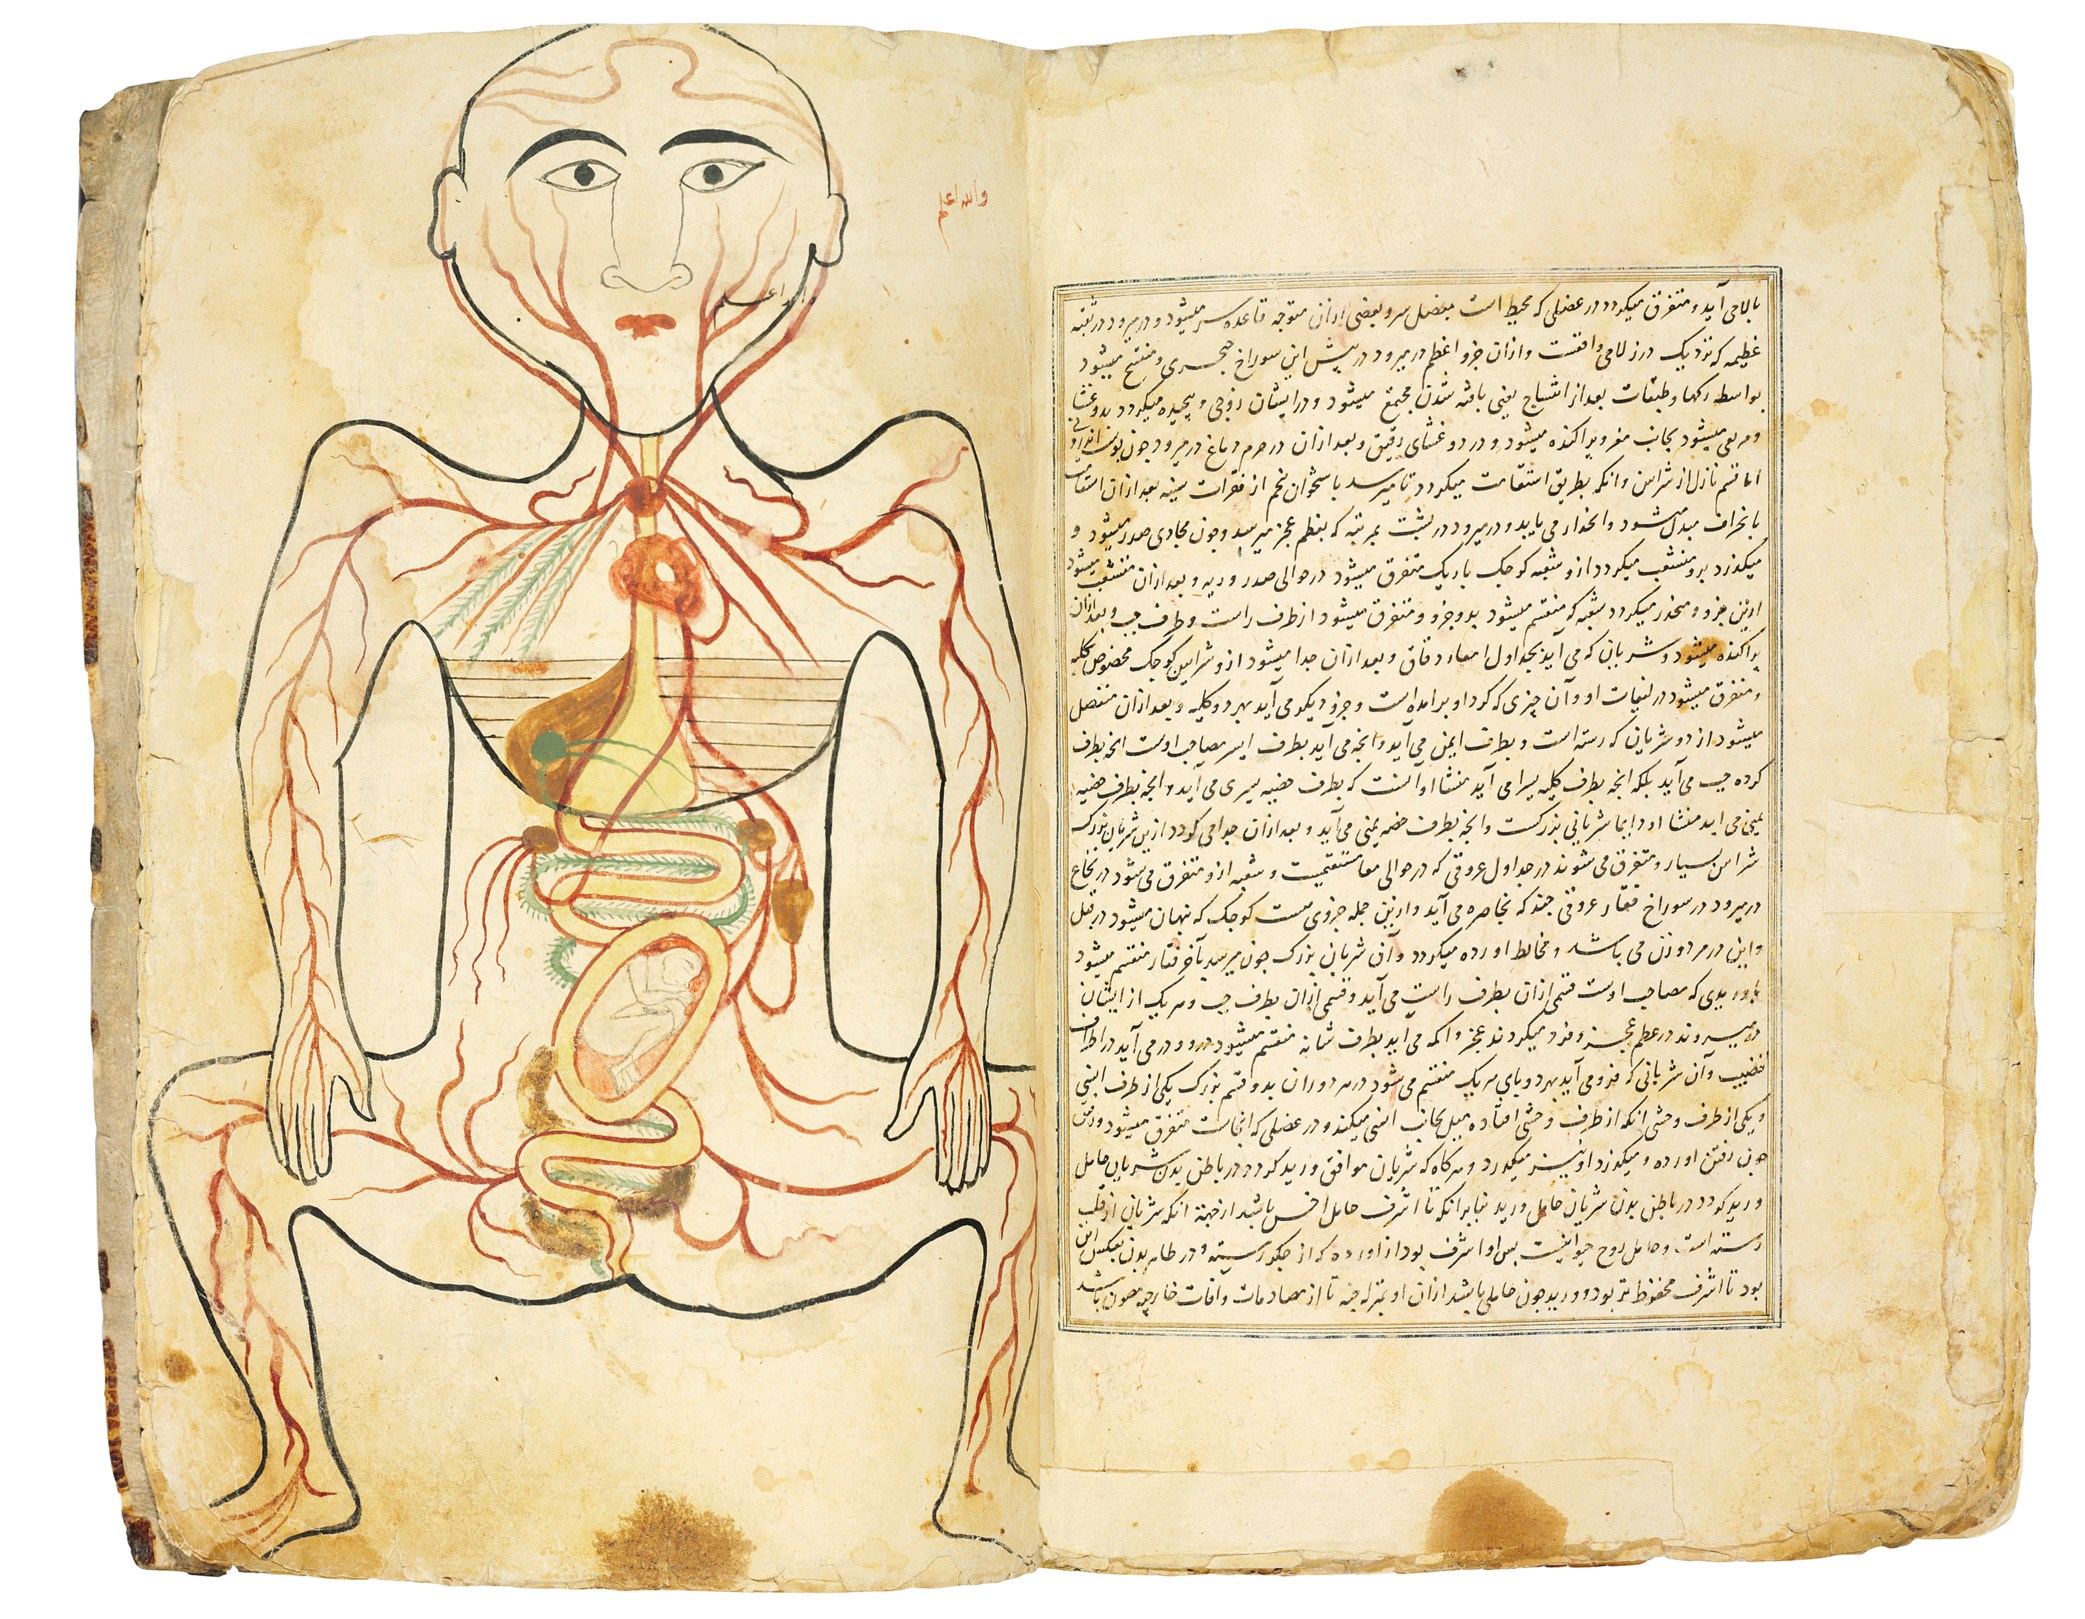 بالا می آید و متفرق میکردد در عضلی که محیط است بمفصل سر و بعضی ازان متوجه قاعده سر میشود و در میرود در ثقبه
عظیمه که نزدیک درز لامی واقست وازان جزو اعظم در میرود در پیش این سوراخ حجری و منتسج میشود
بواسطه رکها و طبقات بعد از انتساج یعنی بافته شدن مجتمع میشود و در ایشان زوجی و پیچیده میکردد بدو غشا
و مرتقی میشود بجانب مغز و پراکنده میشود و در دو غشای رقیق و بعد ازان در جرم دماغ در میرود چون
اما قسم نازل از شراین و انکه بطریق استقامت میکردد تا میرسد باستخوان پنجم از فقرات سینه بعد ازان استقامت
بانحراف مبدل میشود و انحدار می یابد و در میرود در پشت بمرتبه که بعظم عجز میرسد و چون بمحاذی صدر میشود و
میکذرد برو منشعب میکردد ازو شعبه کوچک باریک متفرق میشود در حوالی صدر و ریه و بعد ازان منشعب میشود
ازین جزو و منحدر میکردد شعبه که منقسم میشود بدو جزو و متفرق میشود از طرف راست و طرف چپ و بعد ازان
پراکنده میشود و شریانی که می آید بجداول امعاء دقاق و بعد ازان جدا میشود ازو شراین کوچک مخصوص بکلیه
و متفرق میشود در لیفات او و آن چیزی که کرد او برامده است و جزو دیکر می آید بهر دو کلیه و بعد ازان منفصل
میشود از دو شریان که رسته است و بطرف ایمن می آید و انچه می آید بطرف ایسر مصاحب اوست انچه بطرف
کرده چپ می آید بلکه انچه بطرف کلیه یسرا می آید منشا او انست که بطرف خصیه یسری می آید و انچه بطرف خصیه
یمنی می اید منشا او دایما شریانی بزرکست و انچه بطرف خصیه یمنی می آید و بعد ازان جدا می کردد ازین شریان بزرک
شراین بسیار و متفرق می شوند در جداول عروقی که در حوالی معا مستقیمست و شعبه ازو متفرق می شود در نخاع
در میرود در سوراخ فقار عروقی چند که بخاصره می آید و ازین جمله جزوی هست کوچک که نهان میشود در قبل
و این در مرد و زن می باشد و مخالط اورده میکردد و آن شریان بزرک چون میرسد بآخر فقار منقسم میشود
با وریدی که مصاحب اوست قسمی ازان بطرف راست می آید و قسمی ازان بطرف چپ و هر یک از ایشان
در میروند در عظم عجز و فرد میکردند عجز و انکه می آید بطرف مثانه منقسم میشود درو و در می آید در اطراف
قضیب و آن شریانی که فرو می آید بهر دو پای هر یک منقسم می شود در هر دو ران بدو قسم بزرک یکی از طرف انسی
و یکی از طرف وحشی انکه از طرف وحشی افتاده میل بجانب انسی میکند و در عضلی که انجاست متفرق میشود و زمن
چون رفتن اورده و میکذرد او نیز میکذرد و هر کاه که شریان موافق ورید کردد در باطن بدن شریان حامل
ورید کردد در باطن بدن شریان حامل ورید بنابر انکه تا اشرف حامل اخس باشد از جهة انکه شریان از قلب
رسته است و حامل روح حیوانیست پس او اشرف بود از اورده که از جکر رسیته و در ظاهر بدن بعکس این
بود تا اشرف محفوظ تر بود و ورید چون حاملی باشد ازان او بمنزله جنه تا از مصادمات و افات خارجیه مصون باشد
والله اعلم